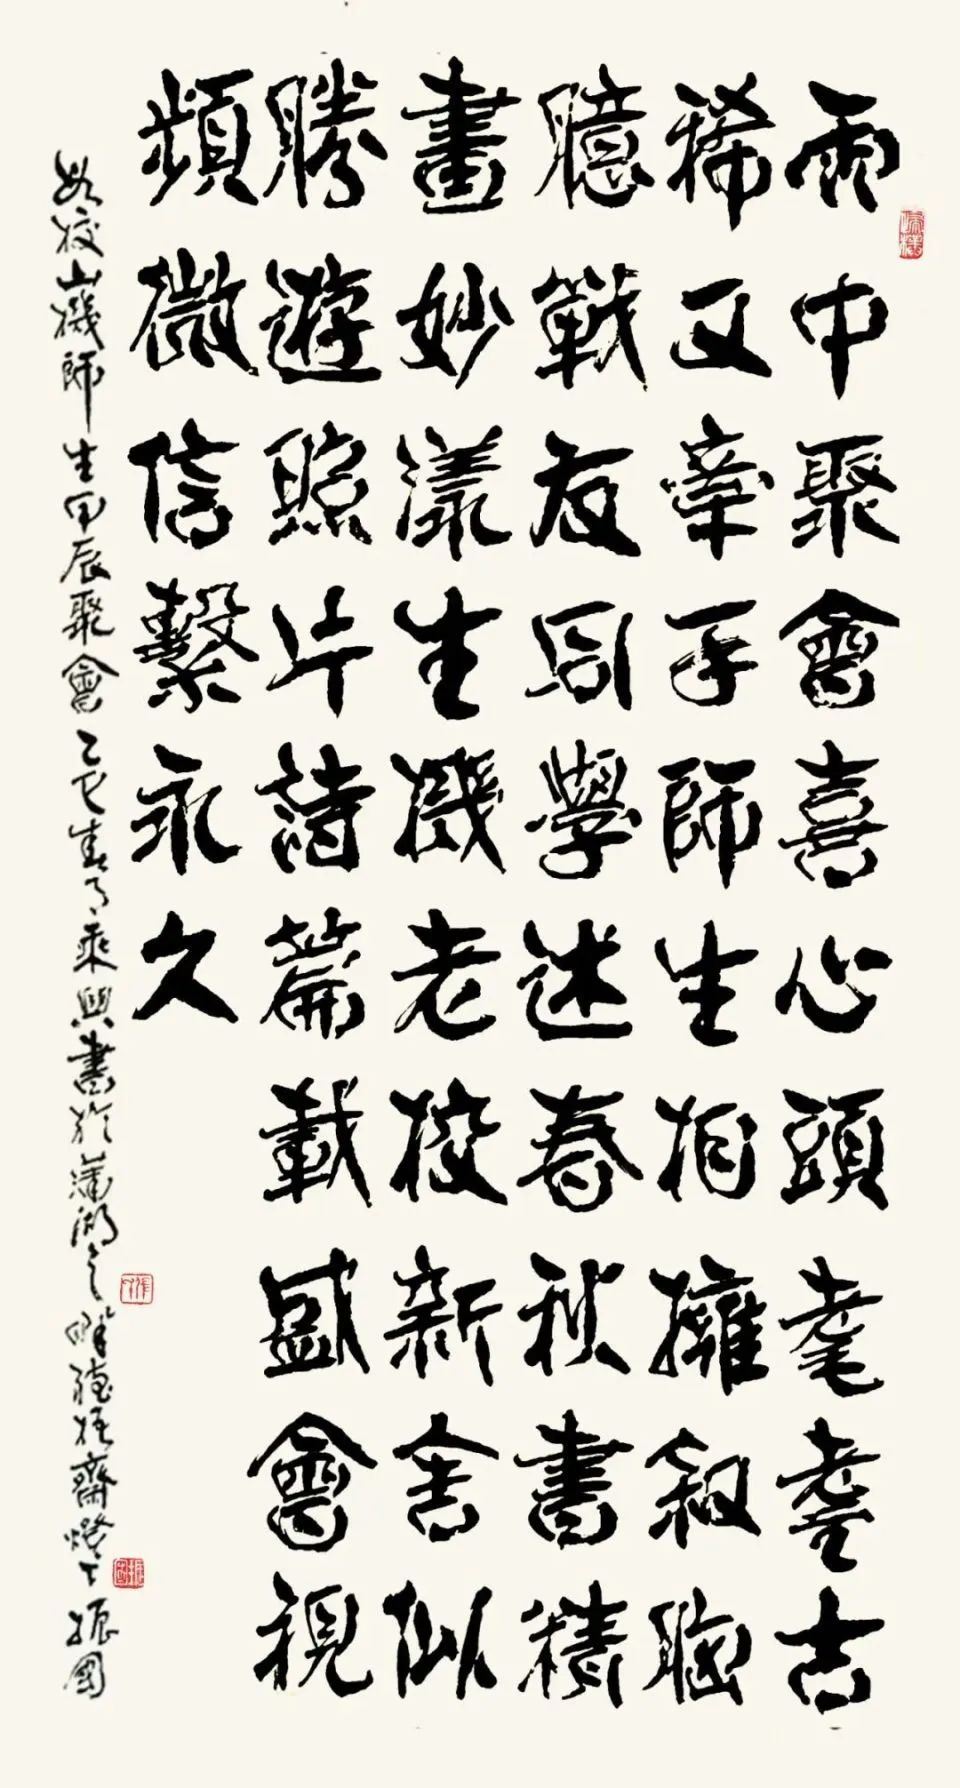 雨中聚會喜心頭耄耋古
稀又牽手師生相擁叙胸
臆戰友同學述春秋書精
畫妙漾生機老校新舍似
勝遊照片詩篇載盛會視
頻微信繫永久
山機師生甲辰聚會乙巳春月乘興書於蒲湖之 齋燈下振國